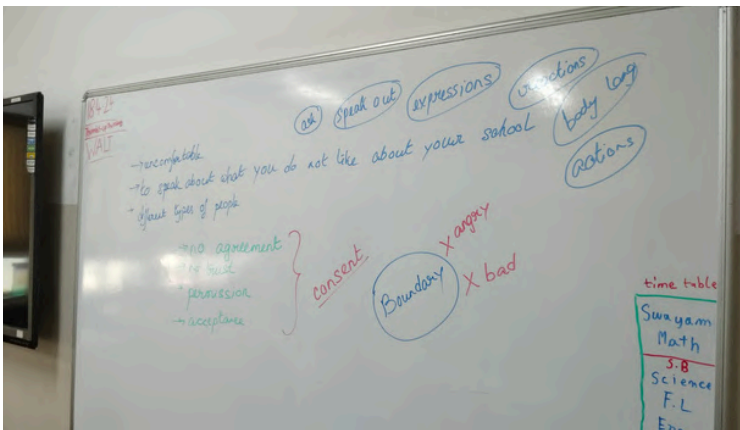 ask
speak out
expressions
reactions
body lang
actions
WALT
→ uncomfortable
→ to speak about what you do not like about your school
→ different types of people
→ no agreement
→ permission
→ acceptance
consent
Boundary
X angry
X bad
time table
Swayam
Math
S.B
Science
F.L